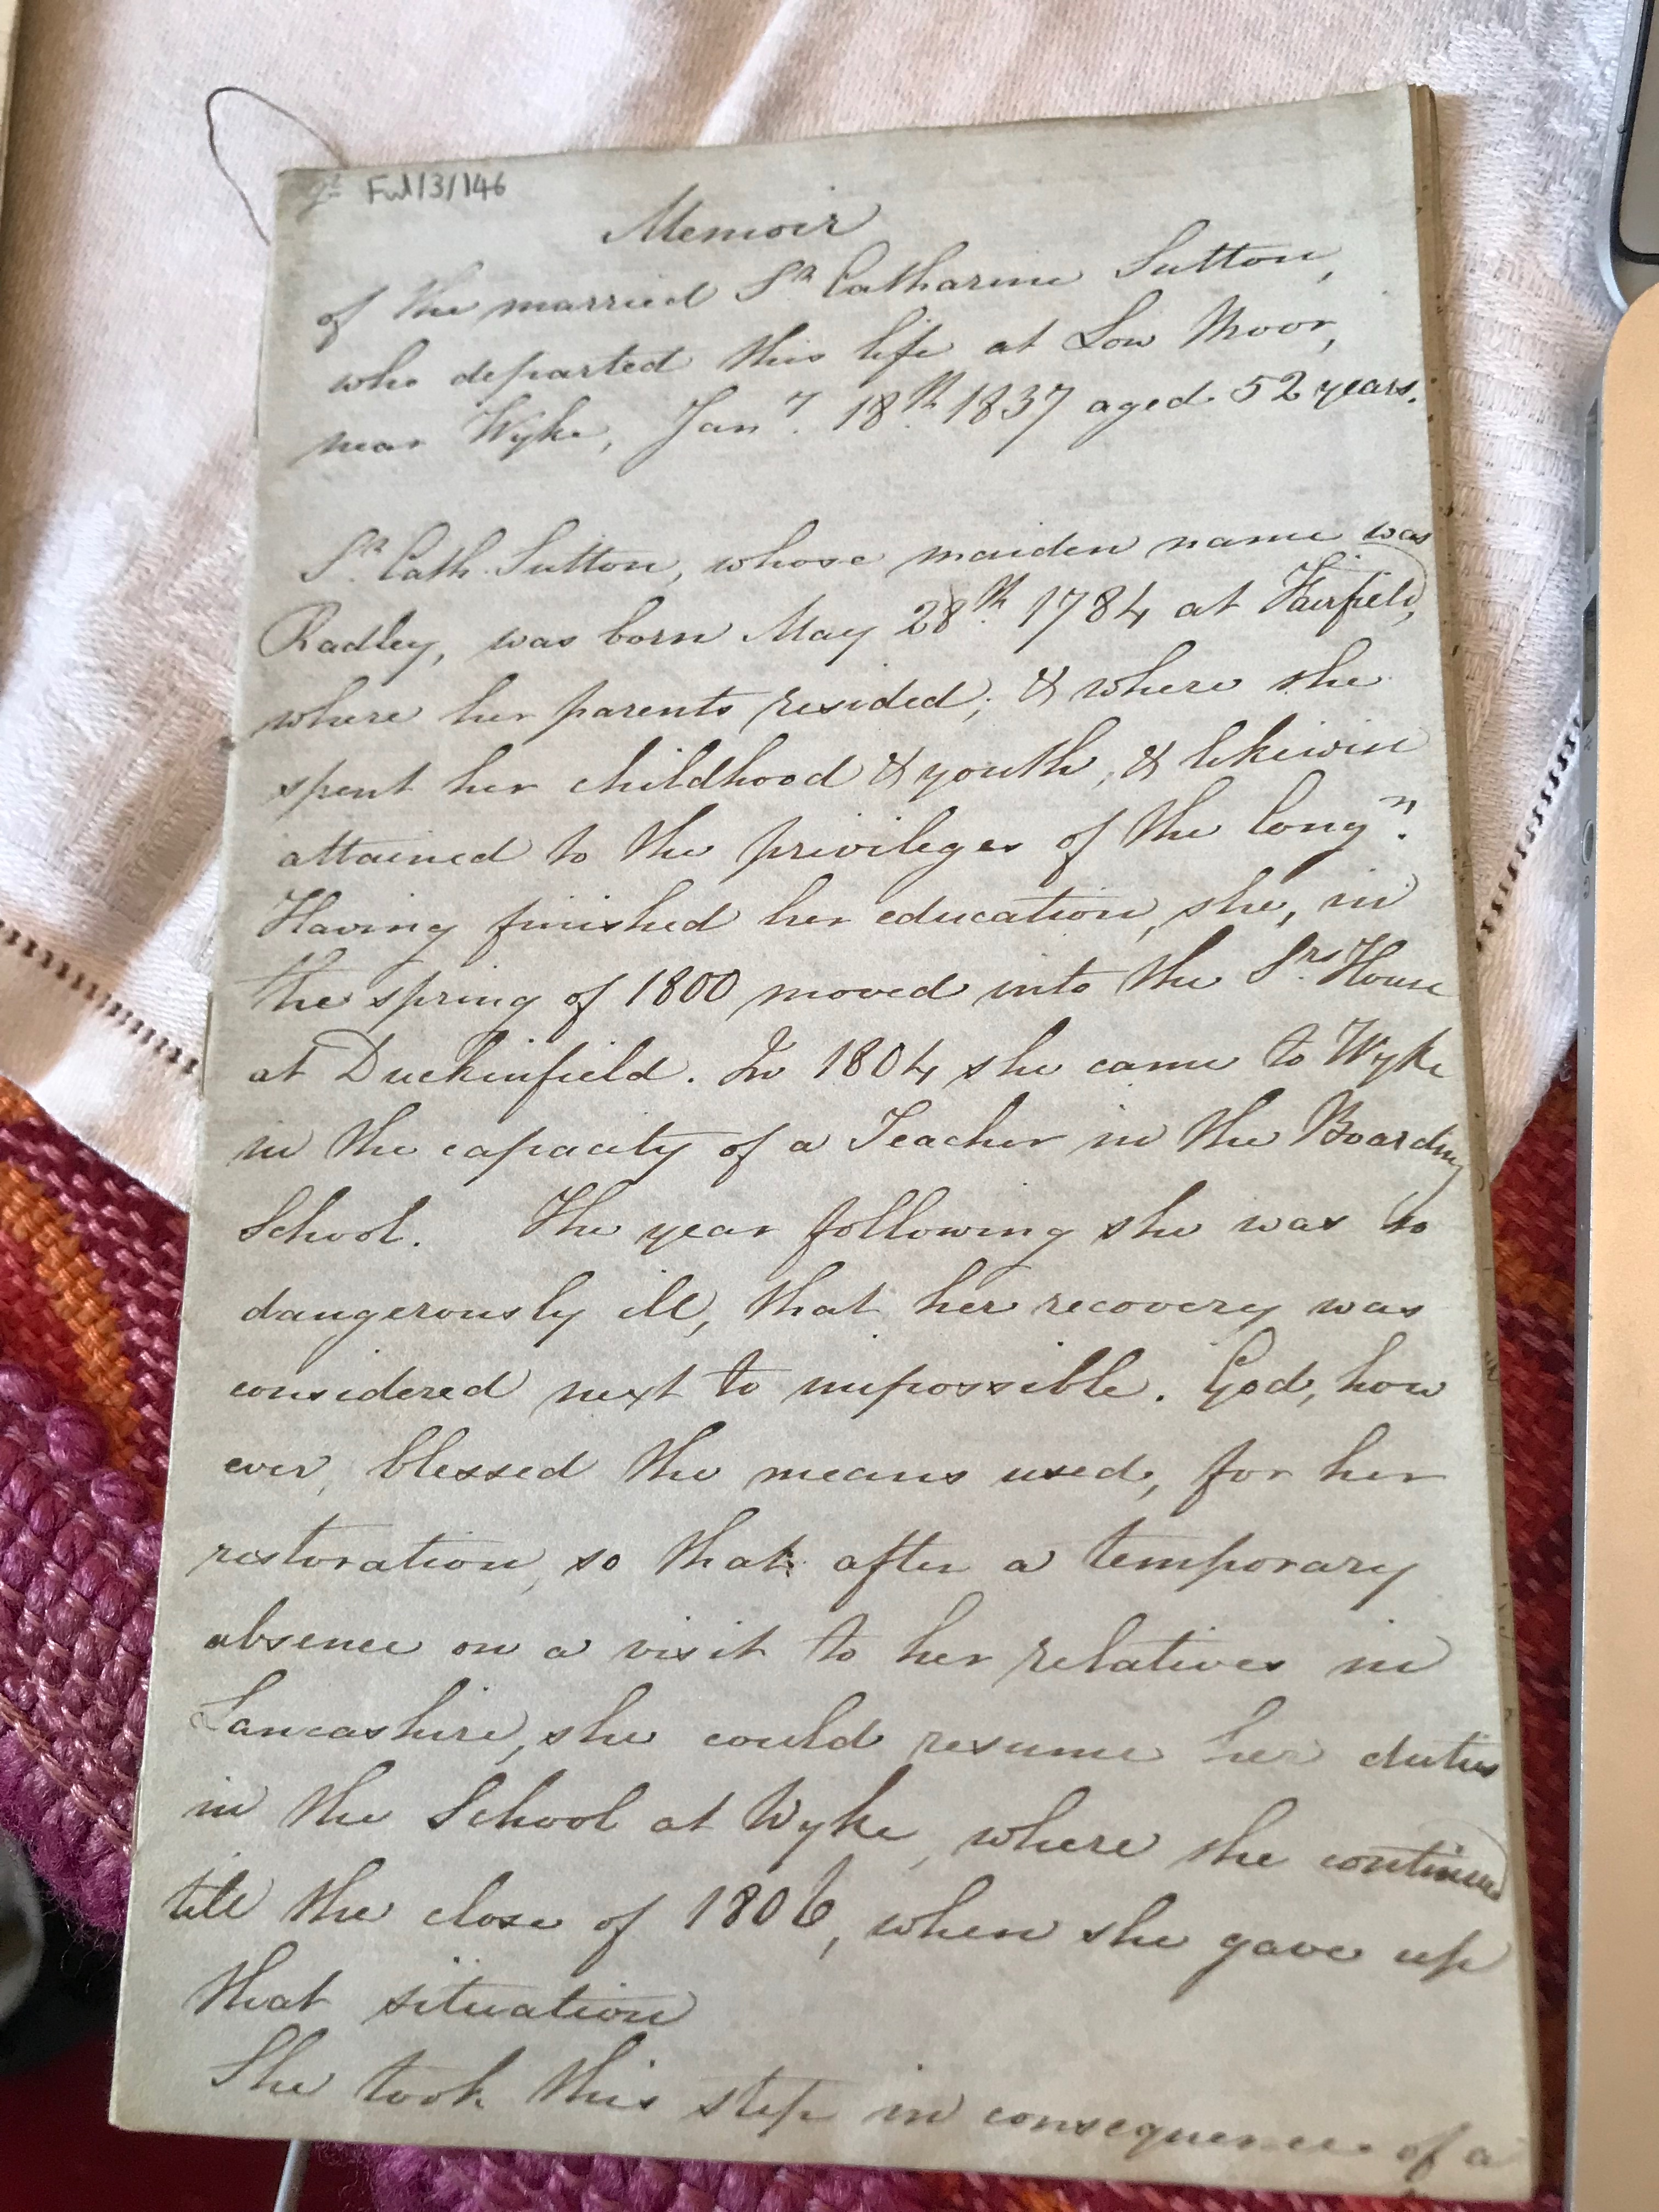 Ful/3/146
Memoir
of the married Sr. Catharine Sutton,
who departed this life at Low Moor,
near Wyke, Jany. 18th. 1837 aged 52 years.
Sr. Cath. Sutton, whose maiden name was
Radley, was born May 28th. 1784 at Fairfield,
where her parents resided; & where she
spent her childhood & youth, & likewise
attained to the privileges of the Congn.
Having finished her education, she, in
the spring of 1800 moved into the Srs. House
at Duckinfield. In 1804 she came to Wyke
in the capacity of a Teacher in the Boarding
School. The year following she was so
dangerously ill, that her recovery was
considered next to impossible. God, how
ever, blessed the means used, for her
restoration, so that after a temporary
absence on a visit to her relatives in
Lancashire, she could resume her duties
in the School at Wyke, where she continued
till the close of 1806, when she gave up
that situation
She took this step in consequence of a